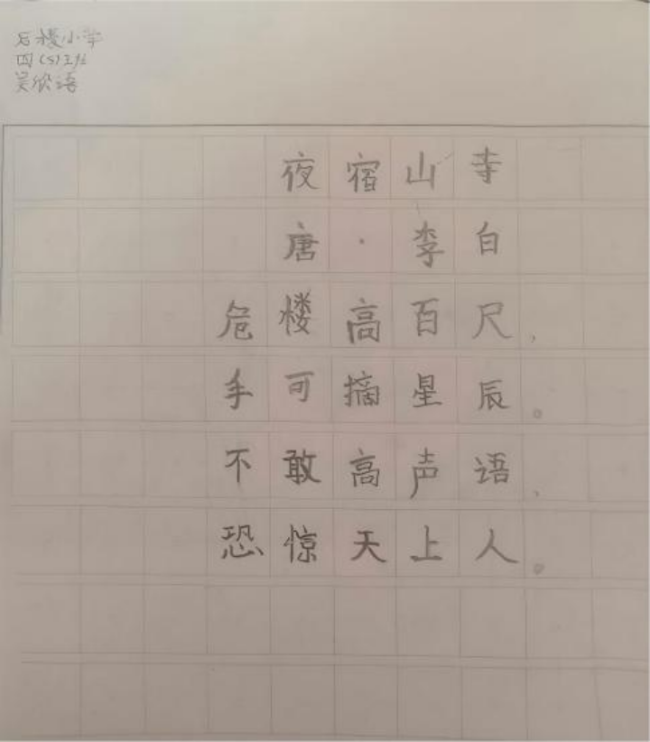 后楼小学
四(5)班
吴欣语
夜宿山寺
唐·李白
危楼高百尺，
手可摘星辰。
不敢高声语，
恐惊天上人。